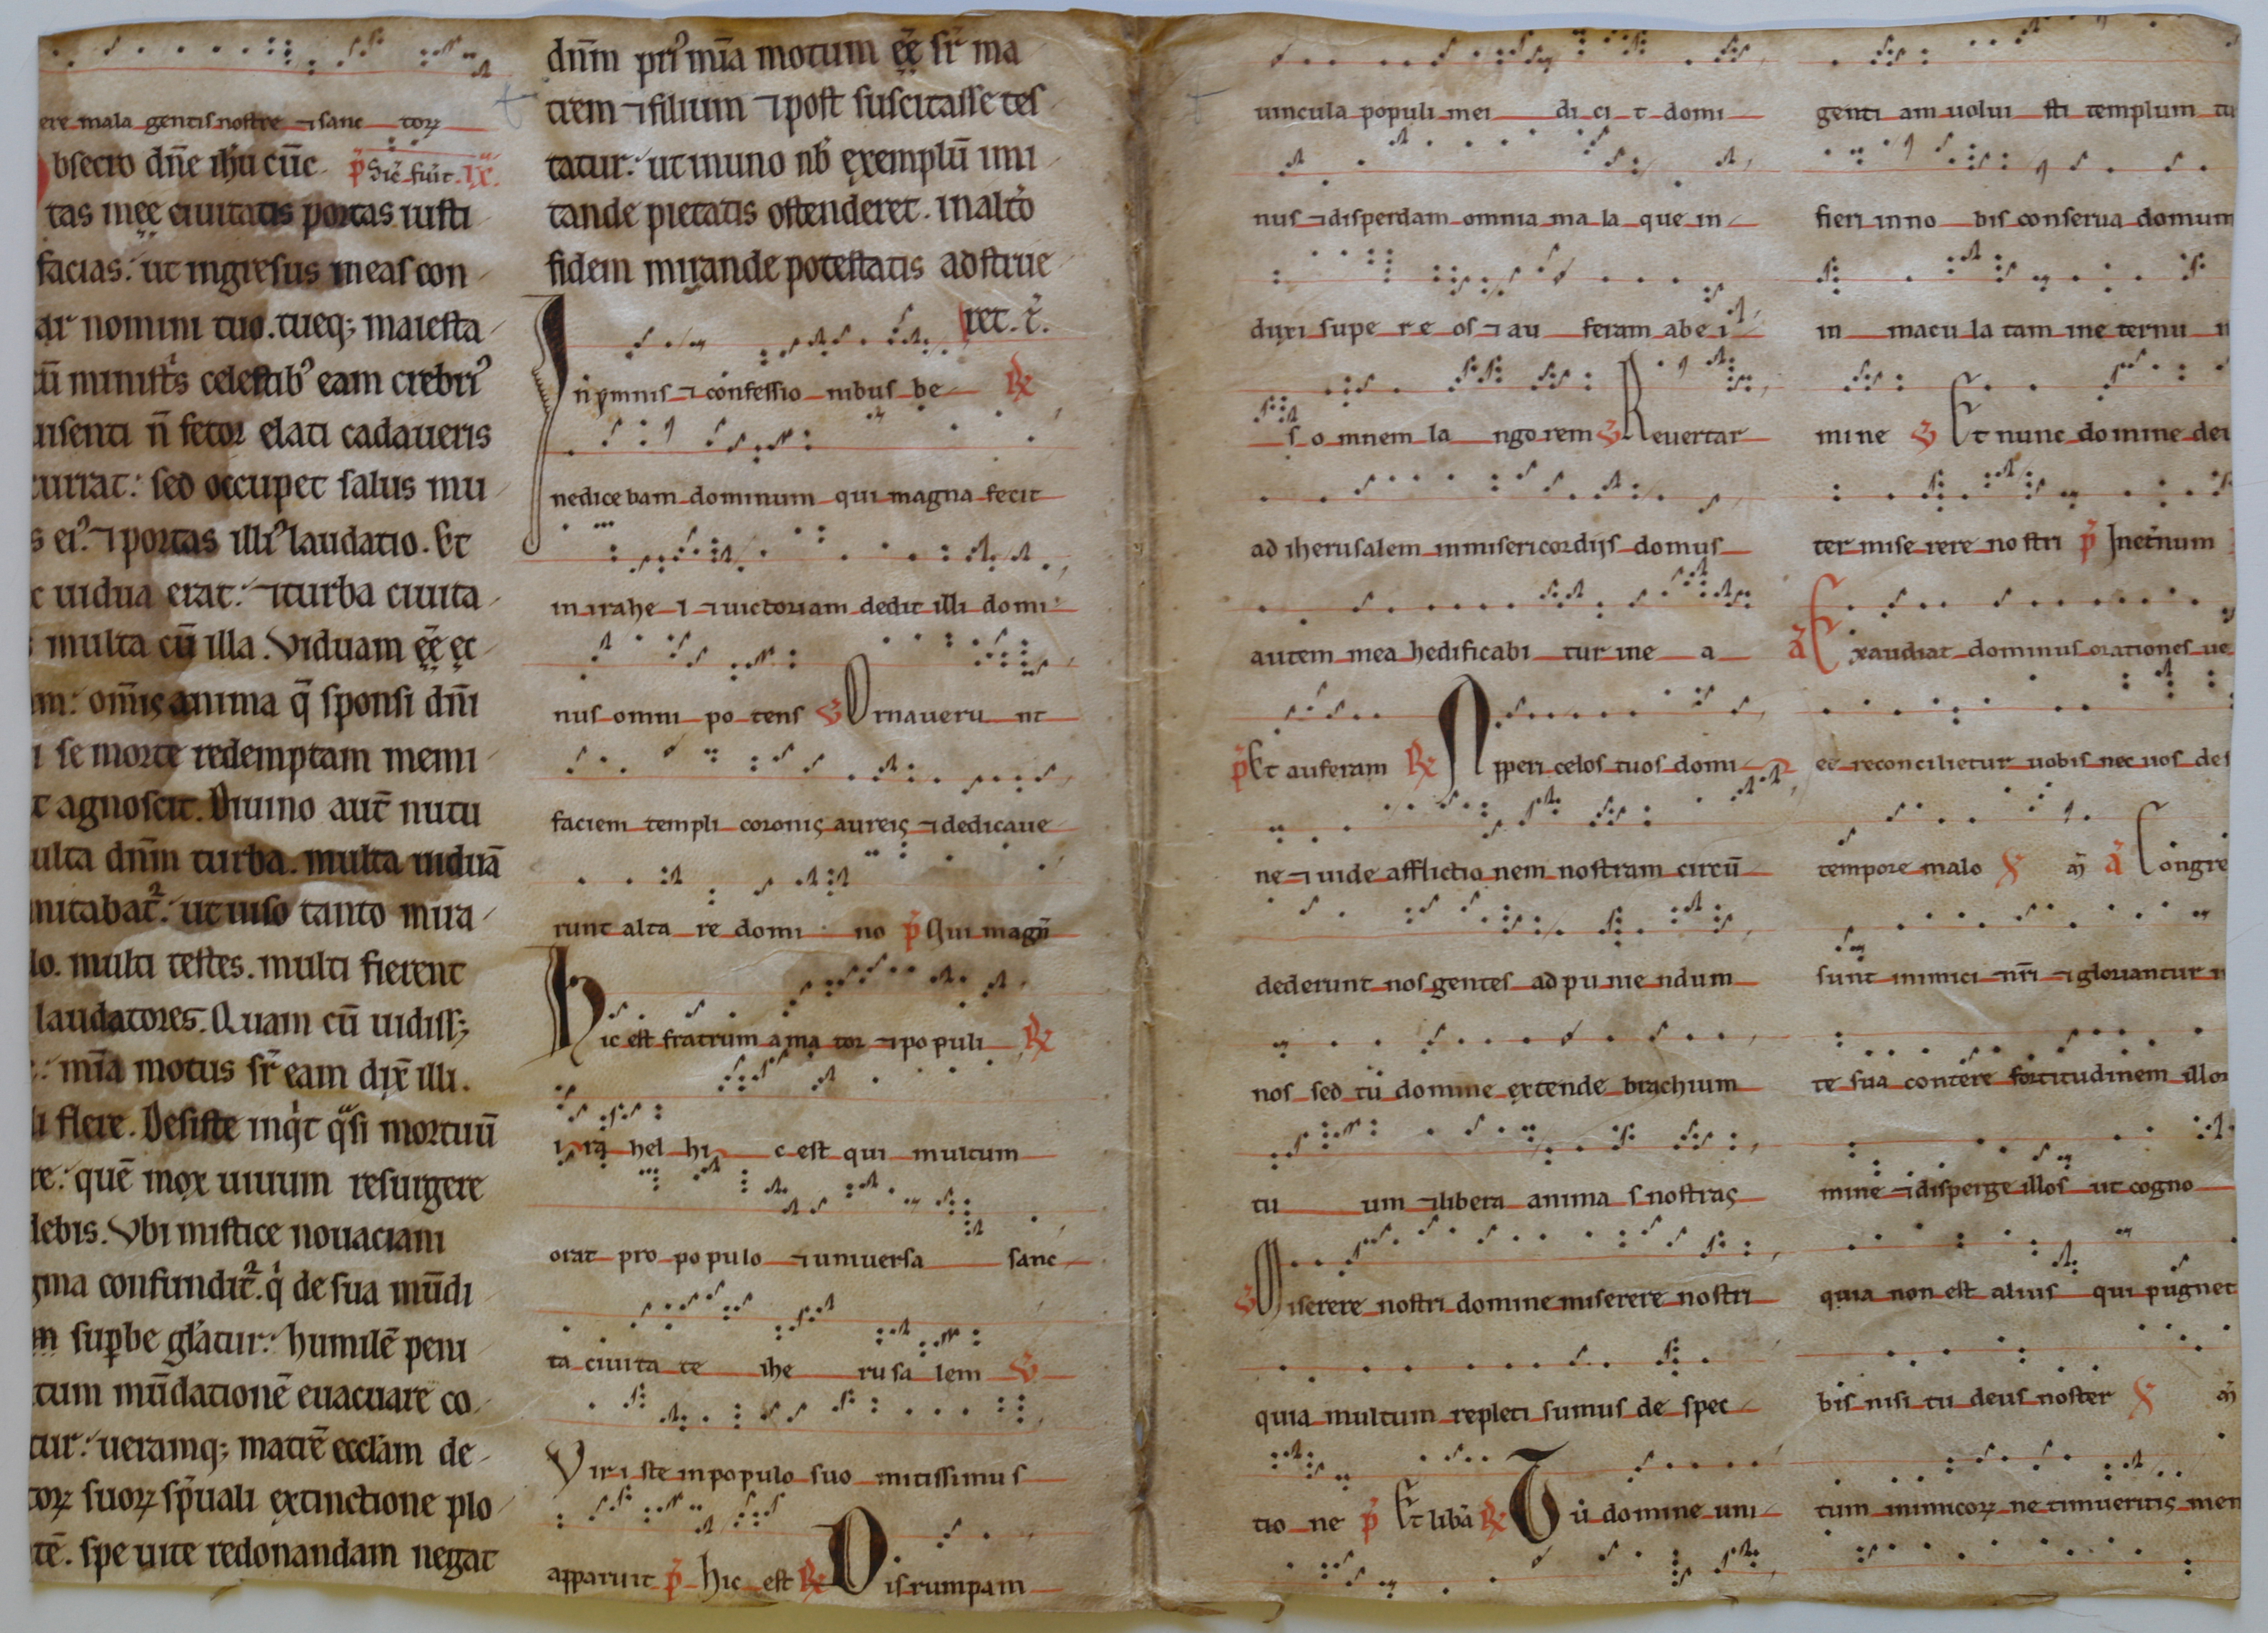 ere mala gentis nostre ⁊ sanc torꝝ
bsecro dn̄e ih̄u cūc p̄ Sic̄ fuīt. IX.
tas meę ciuitatis portas iusti
facias. ut ingresus meas con
ar nomini tuo. tueq; maiesta
cū ministris celestib᾿ eam crebri᾿
uisenti n̄ fetor elati cadaueris
currat. sed occupet salus mu
s ei᾿. ⁊ portas illi᾿ laudatio. Et
c uidua erat. ⁊ turba ciuita
multa cū illa. Viduam ęę̄ ęc
am. om̄is anima q̄ sponsi dn̄i
i se morte redemptam memi
t agnoscit. Diuino aut̄ nutu
ulta dn̄m turba. multa uiduā
mitabat᾿. ut uiso tanto mira
lo. multi testes. multi fierent
laudatores. Quam cū uidiss;
mīa motus sr̄ eam dix̄ illi.
li flere. Desiste inqͥt qͣsi mortuū
re. quē mox uiuum resurgere
debis. Vbi mistice nouaciani
gma confundit᾿. qͥ de sua mūdi
m supbe glatur. humilē peni
tum mūdationē euacuare co
tur. ueramq; matrē eccłam de
torꝝ suorꝝ sp̄uali extinctione plo
tē. spe uite redonandam negat
dn̄m pri᾿ mīa motum ęę̄ sr̄ ma
trem ⁊ filium ⁊ post suscitasse tes
tatur. ut in uno nb̄ exemplū imi
tande pietatis ostenderet. in alto
fidem mirande potestatis adstrue
ret. r̄.
In ymnis ⁊ confessio nibus be ℟
nedice bam dominum qui magna fecit
in irahe l ⁊ uictoriam dedit illi domi
nus omni po tens ℣ Ornaueru nt
faciem templi coronis aureis ⁊ dedicaue
runt alta re domi no p̄ Qui magn̄
Hic est fratrum ama tor ⁊ po puli ℟
i ra hel hi c est qui multum
orat pro po pulo ⁊ uniuersa sanc
ta ciuita te ihe ru sa lem ℣
Vir i ste in populo suo mitissimus
apparuit p̄ hic est ℟ Disrumpam
uincula populi mei di ci t domi
nus ⁊ disperdam omnia ma la que in
duxi supe r e os ⁊ au feram abe i
s o mnem la ngo rem ℣ Reuertar
ad iherusalem in misericordijs domus
autem mea hedificabi tur in e a
p̄ Et auferam ℟ Apperi celos tuos domi
ne ⁊ uide afflictio nem nostram circū
dederunt nos gentes ad pu nie ndum
nos sed tu domine extende brachium
tu um ⁊ libera anima s nostras
℣ Miserere nostri domine miserere nostri
quia multum repleti sumus de spec
tio ne p̄ Et liba ℟ Tu domine uni
genti am uolui sti templum tu
fieri in no bis conserua domum
in macu la tam in e ternu
mine ℣ Et nunc domine dei
ter mise rere no stri p̄ In et̄num
ā Exaudiat dominus orationes ue
et reconcilietur uobis nec uos des
tempore malo ā Congre
sunt inimici nr̄i ⁊ gloriantur
te sua contere fortitudinem illor
mine ⁊ disperge illos ut cogno
quia non est alius qui pugnet
bis nisi tu deus noster
tum inimicorꝝ ne timueritis mem